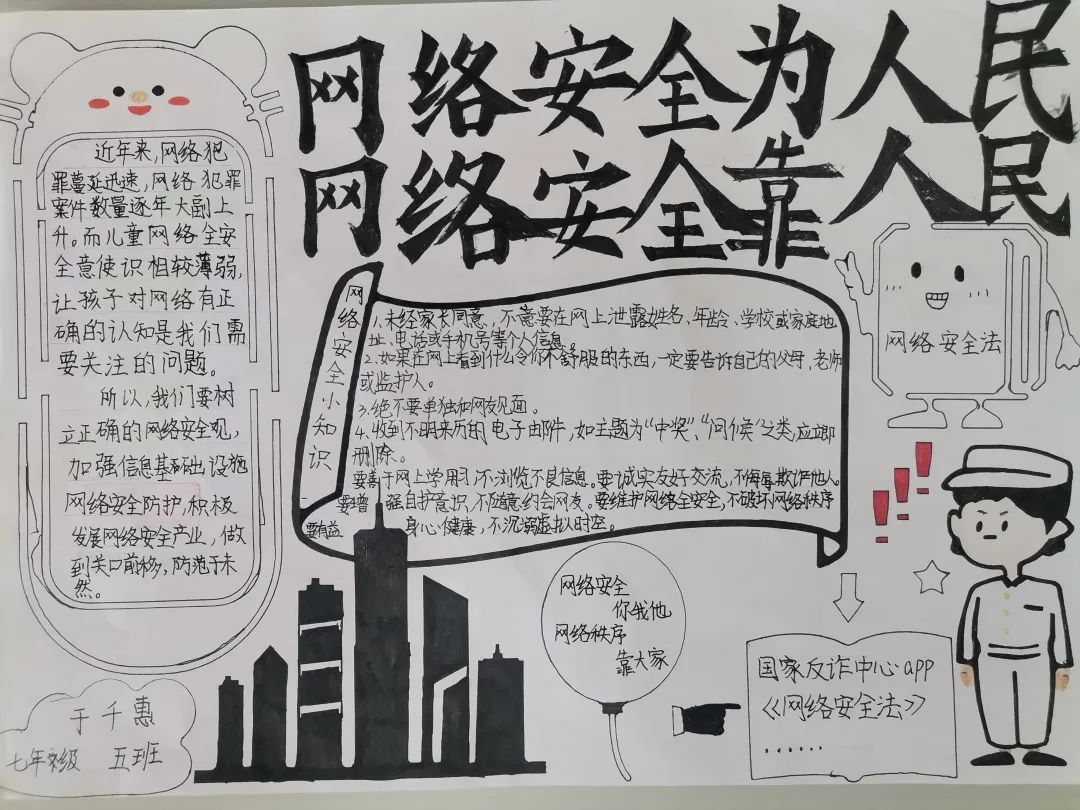 网络安全为人民
网络安全靠人民
近年来,网络犯
罪蔓延迅速,网络犯罪
案件数量逐年大副上
升。而儿童网络全安
全意使识相较薄弱,
让孩子对网络有正
确的认知是我们需
要关注的问题。
所以,我们要树
立正确的网络安全观,
加强信息基础设施
网络安全防护,积极
发展网络安全产业,做
到关口前移,防范于未
然。
网络安全小知识
1.未经家长同意,不意要在网上泄露姓名、年龄、学校或家庭地
址、电话或手机号等个人信息。
2.如果在网上看到什么令你不舒服的东西,一定要告诉自己的父母、老师
或监护人。
3.绝不要单独和网友见面。
4.收到不明来历的电子由邮件,如主题为“中奖”、“问候”之类,应立即
删除。
要善于网上学用习,不浏览不良信息。要诚实友好交流,不侮辱欺诈他人
要增强自护意识,不随意约会网友。要维护网络全安全,不破坏网络秩序
要有益身心健康,不沉溺虚拟时空。
网络安全法
网络安全
你我他
网络秩序
靠大家
国家反诈中心app
《网络安全法》
······
于千惠
七年级 五班